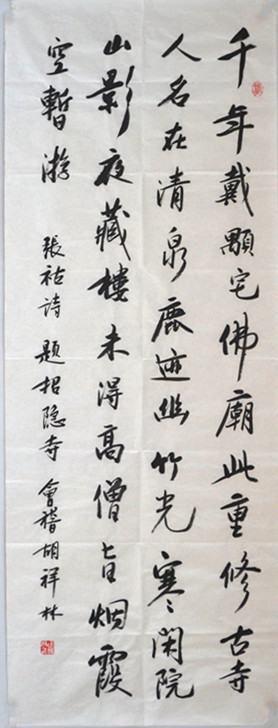 千年戴顒宅佛廟此重修古寺
人名在清泉鹿迹幽竹光寒閑院
山影夜藏樓未得高僧旨烟霞
空暫游 張祜詩 題招隐寺 會稽胡祥林